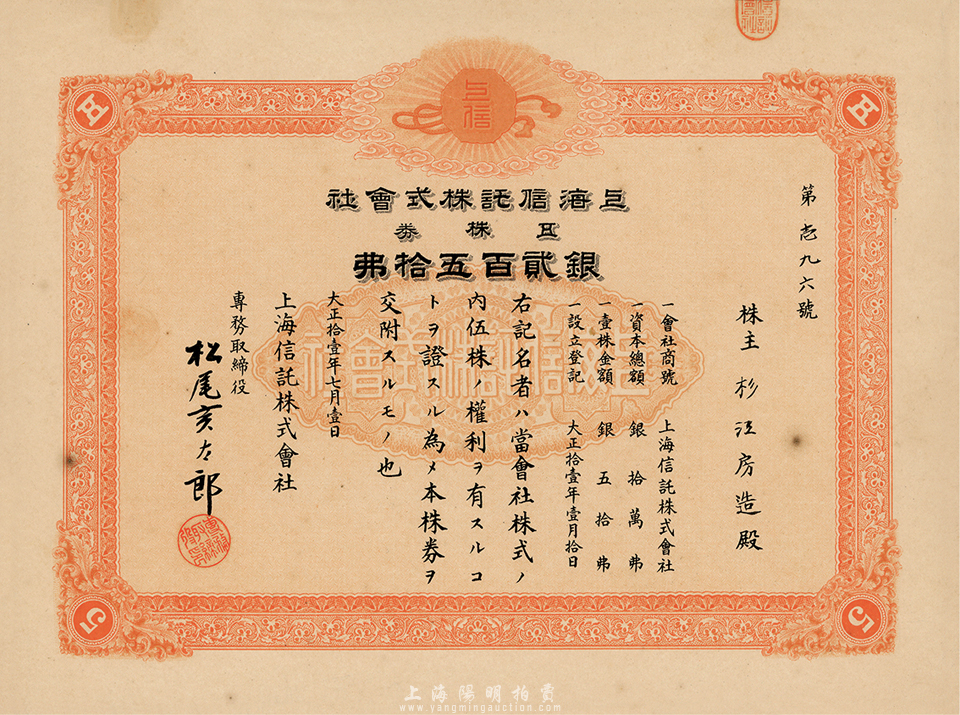 上信
上海信託株式會社
五株券
銀貳百五拾弗
第壱九六號
株主 杉江房造殿
一會社商號 上海信託株式會社
一資本總額 銀拾萬弗
一壹株金額 銀五拾弗
一設立登記 大正拾壹年壹月拾日
右記名者ハ當會社株式ノ
内伍株ノ權利ヲ有スルコ
トヲ證スル為メ本株券ヲ
交附スルモノ也
大正拾壹年七月壹日
上海信託株式會社
專務取締役
松尾亥太郎
五
五
5
5
上海信託株式會社
上海陽明拍賣
www.yangmingauction.com